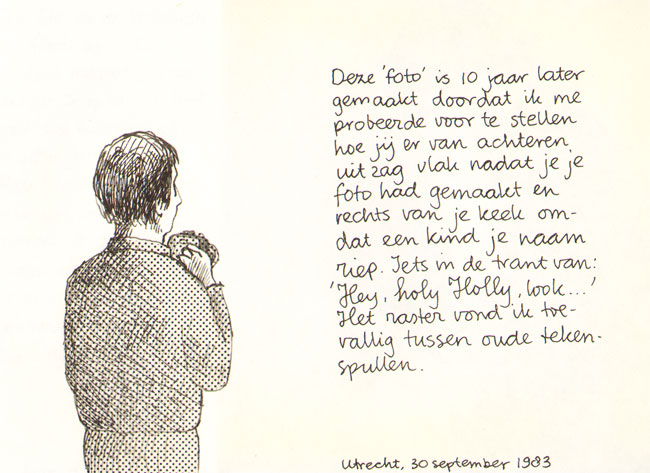 Deze 'foto' is 10 jaar later
gemaakt doordat ik me
probeerde voor te stellen
hoe jij er van achteren
uit zag vlak nadat je je
foto had gemaakt en
rechts van je keek om-
dat een kind je naam
riep. Iets in de trant van:
'Hey, holy Holly, look...'
Het raster vond ik toe-
vallig tussen oude teken-
spullen.
Utrecht, 30 september 1983